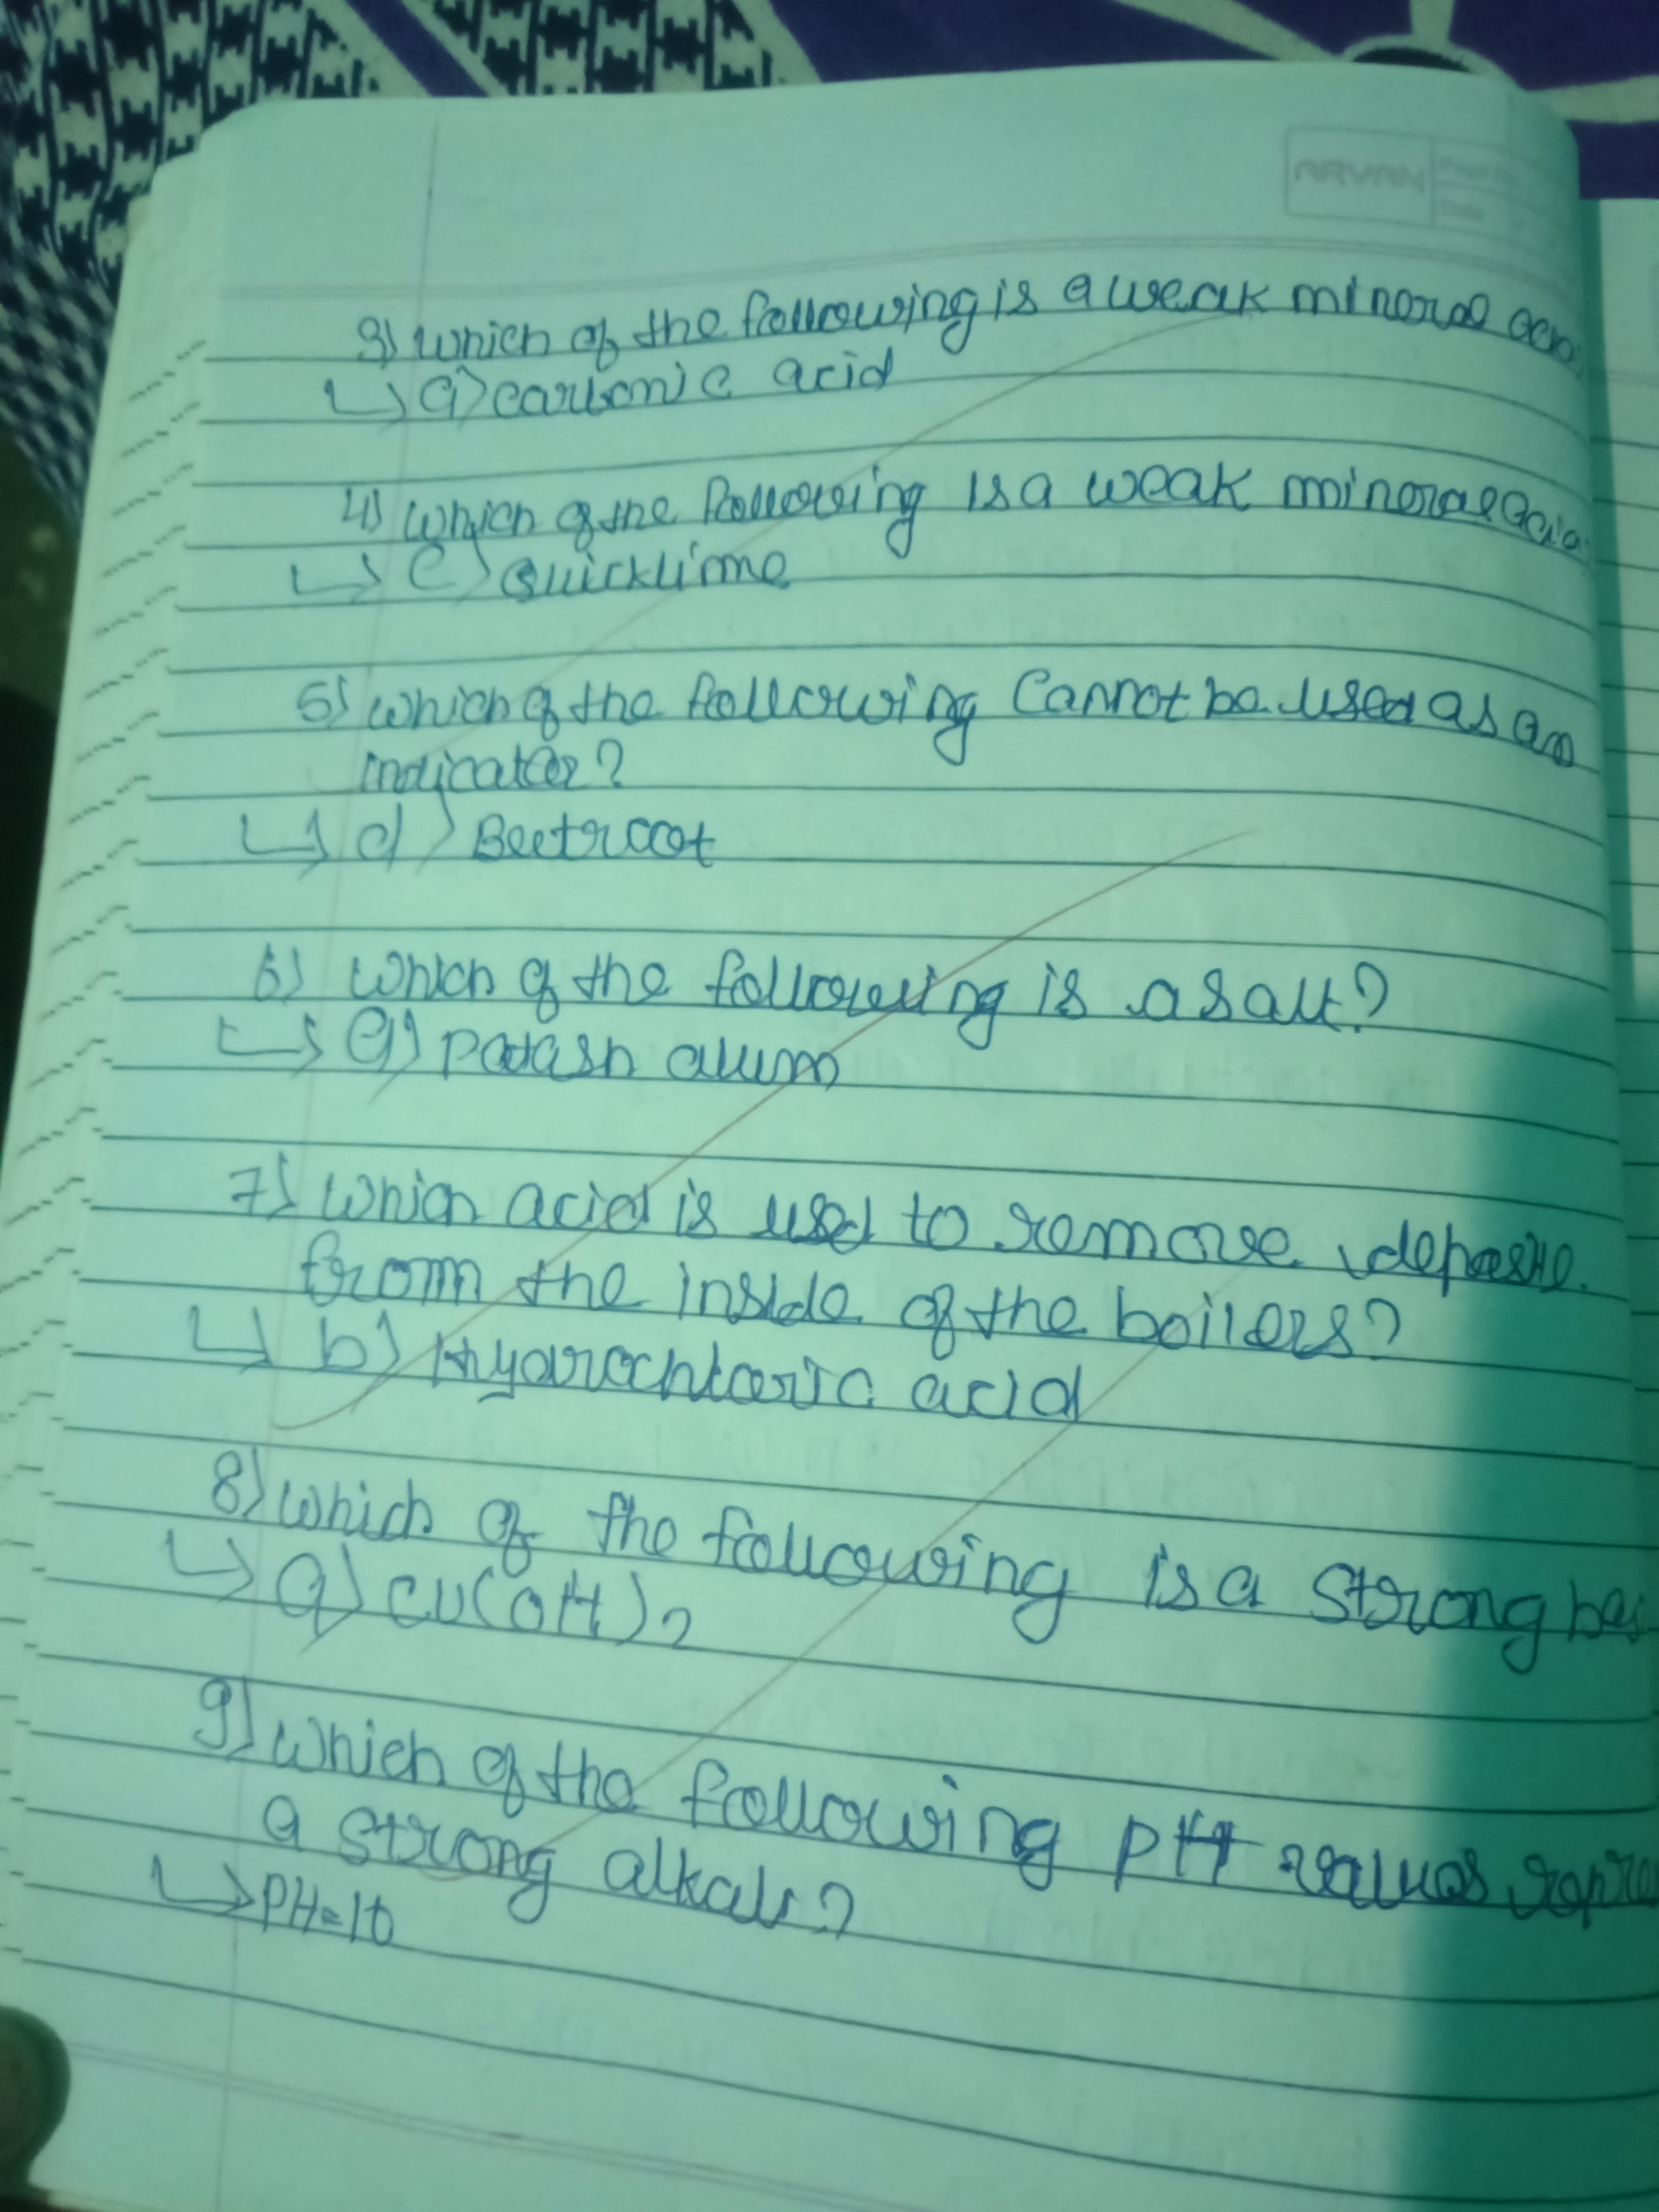 ARVAN
3) which of the following is a weak mineral
↳ a) carbonic acid
4) which of the following is a weak mineral acid
↳ c) Quicklime
5) which of the following Cannot be used as an
indicator?
↳ d) Beetroot
6) which of the following is a salt?
↳ a) potash alum
7) which acid is used to remove
from the inside of the boilers?
↳ b) Hydrochloric acid
8) which of the following is a strong
↳ a) CU(OH)2
9) which of the following pH values
a strong alkali?
↳ PH=10